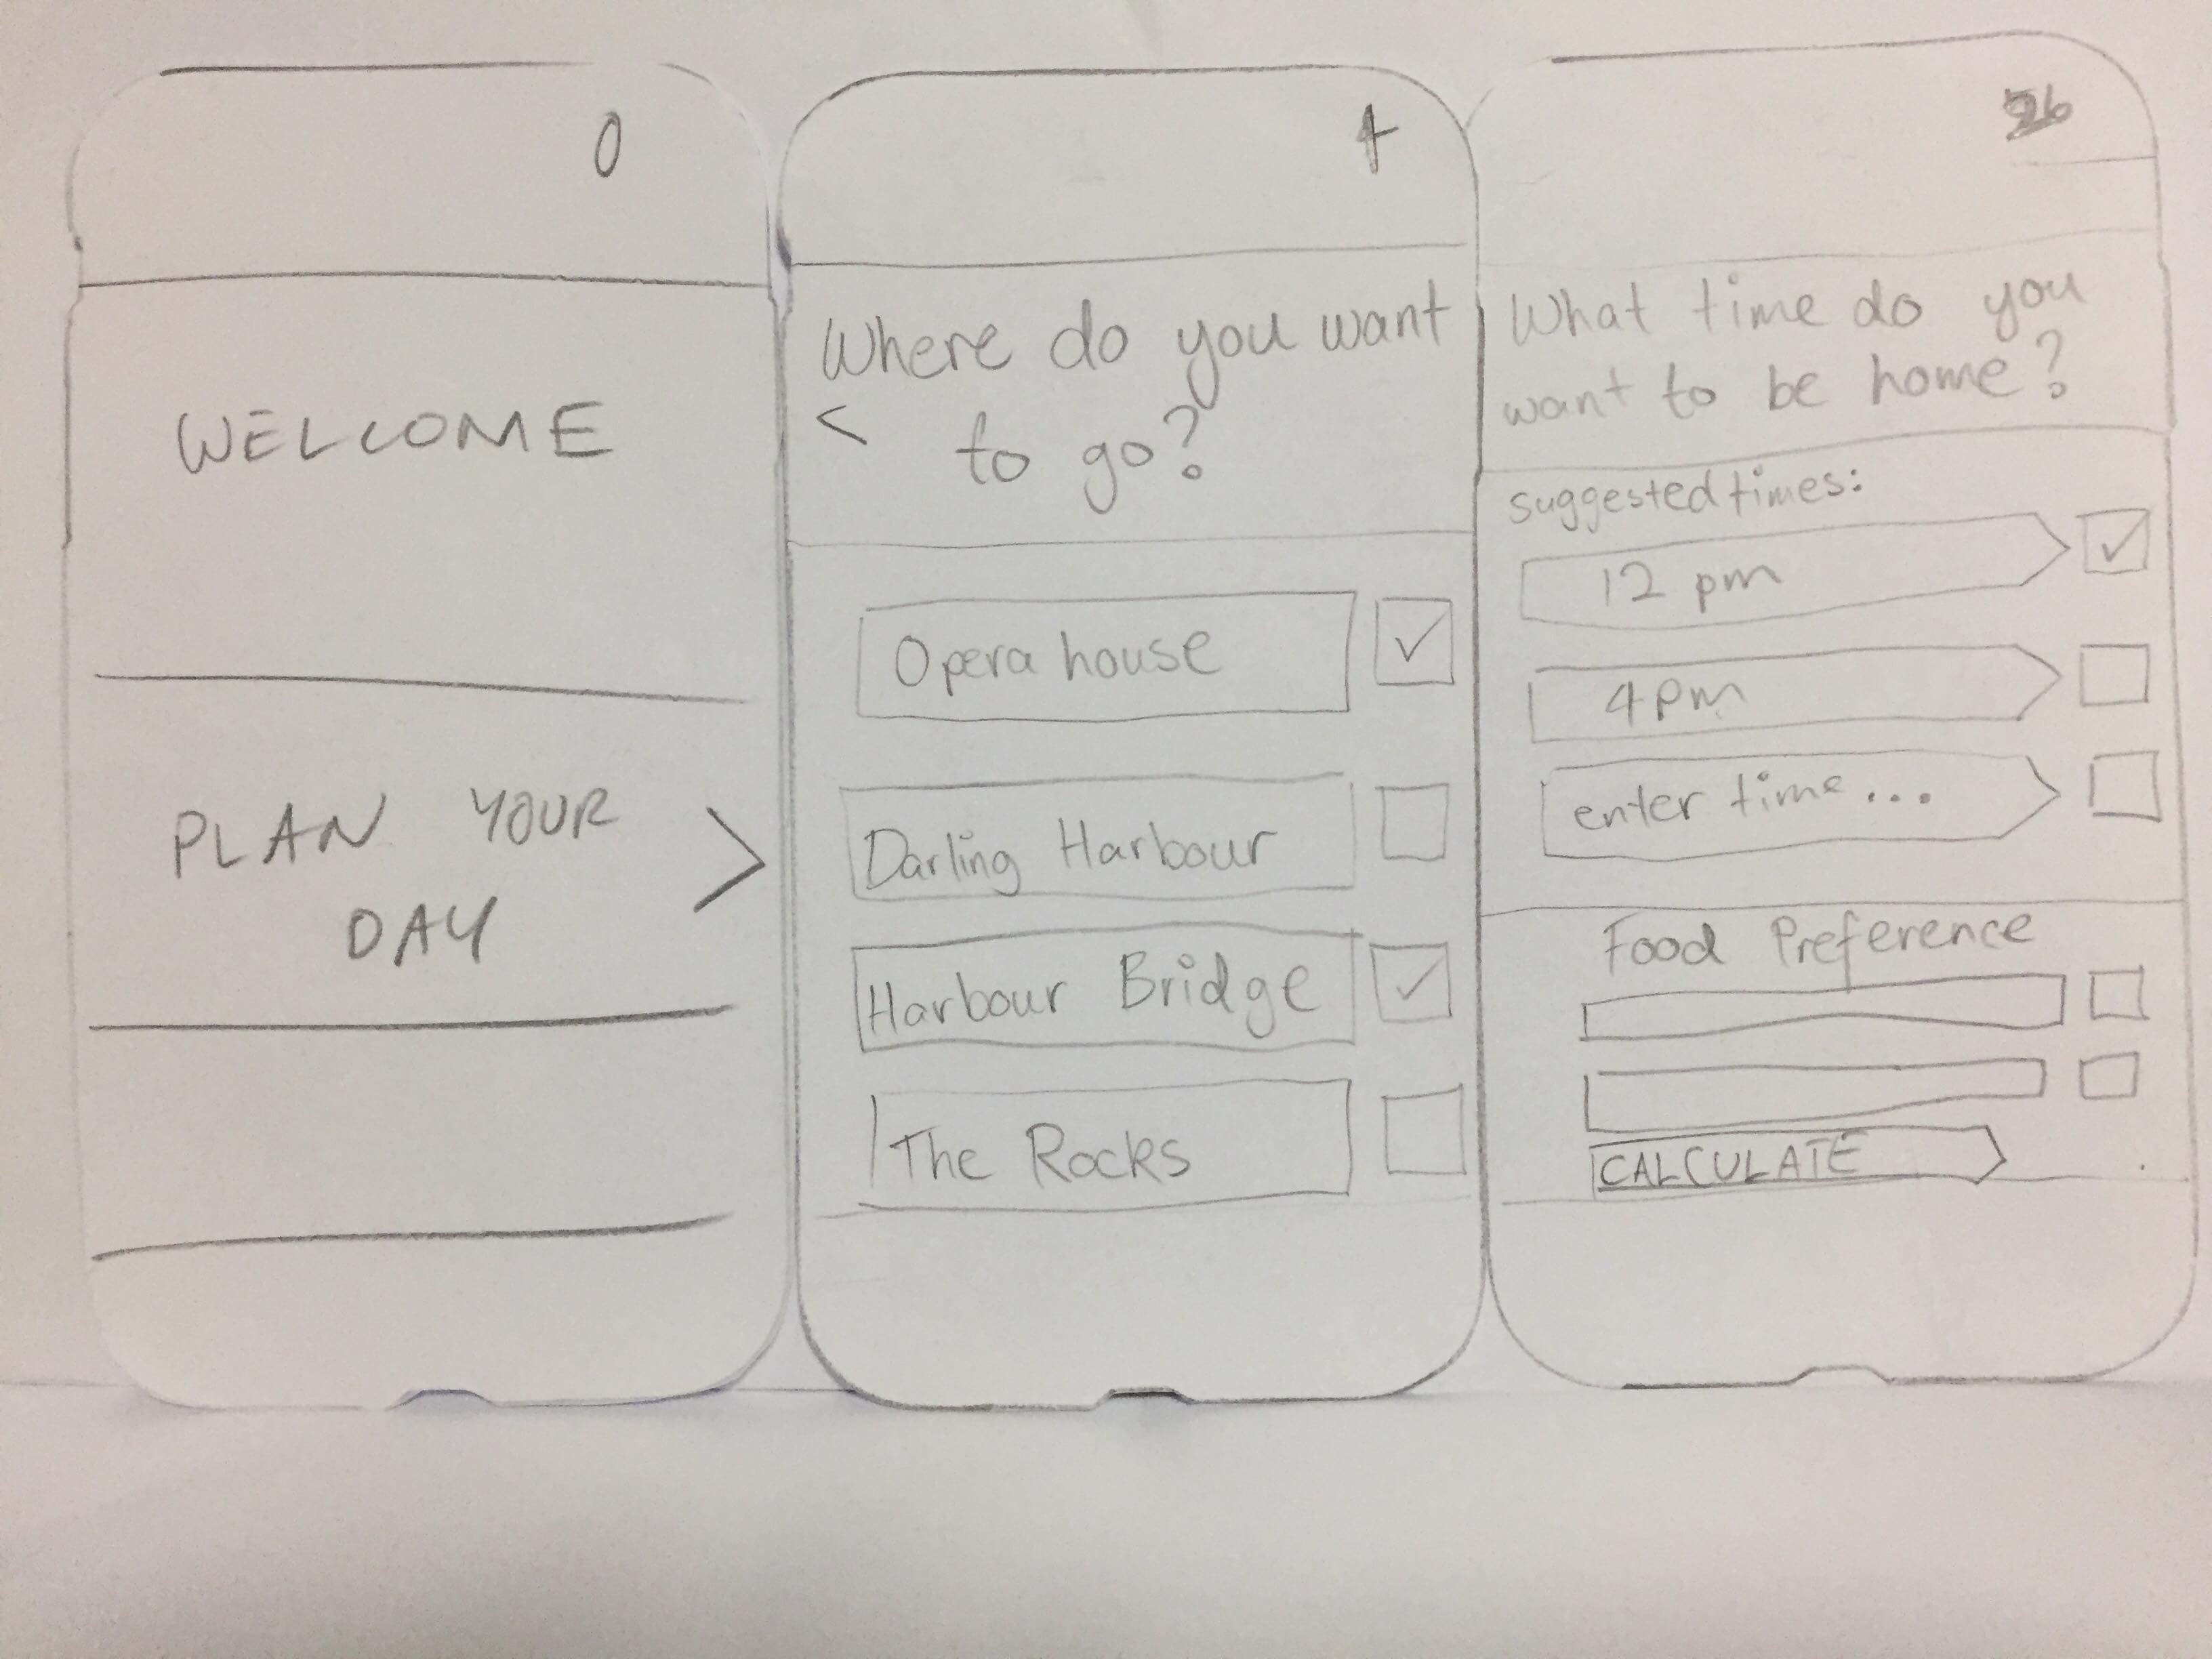 0
WELCOME
PLAN YOUR
DAY
>
Where do you want
< to go?
Opera house
Darling Harbour
Harbour Bridge
The Rocks
What time do you
want to be home?
suggested times:
12 pm
4pm
enter time...
Food Preference
CALCULATE